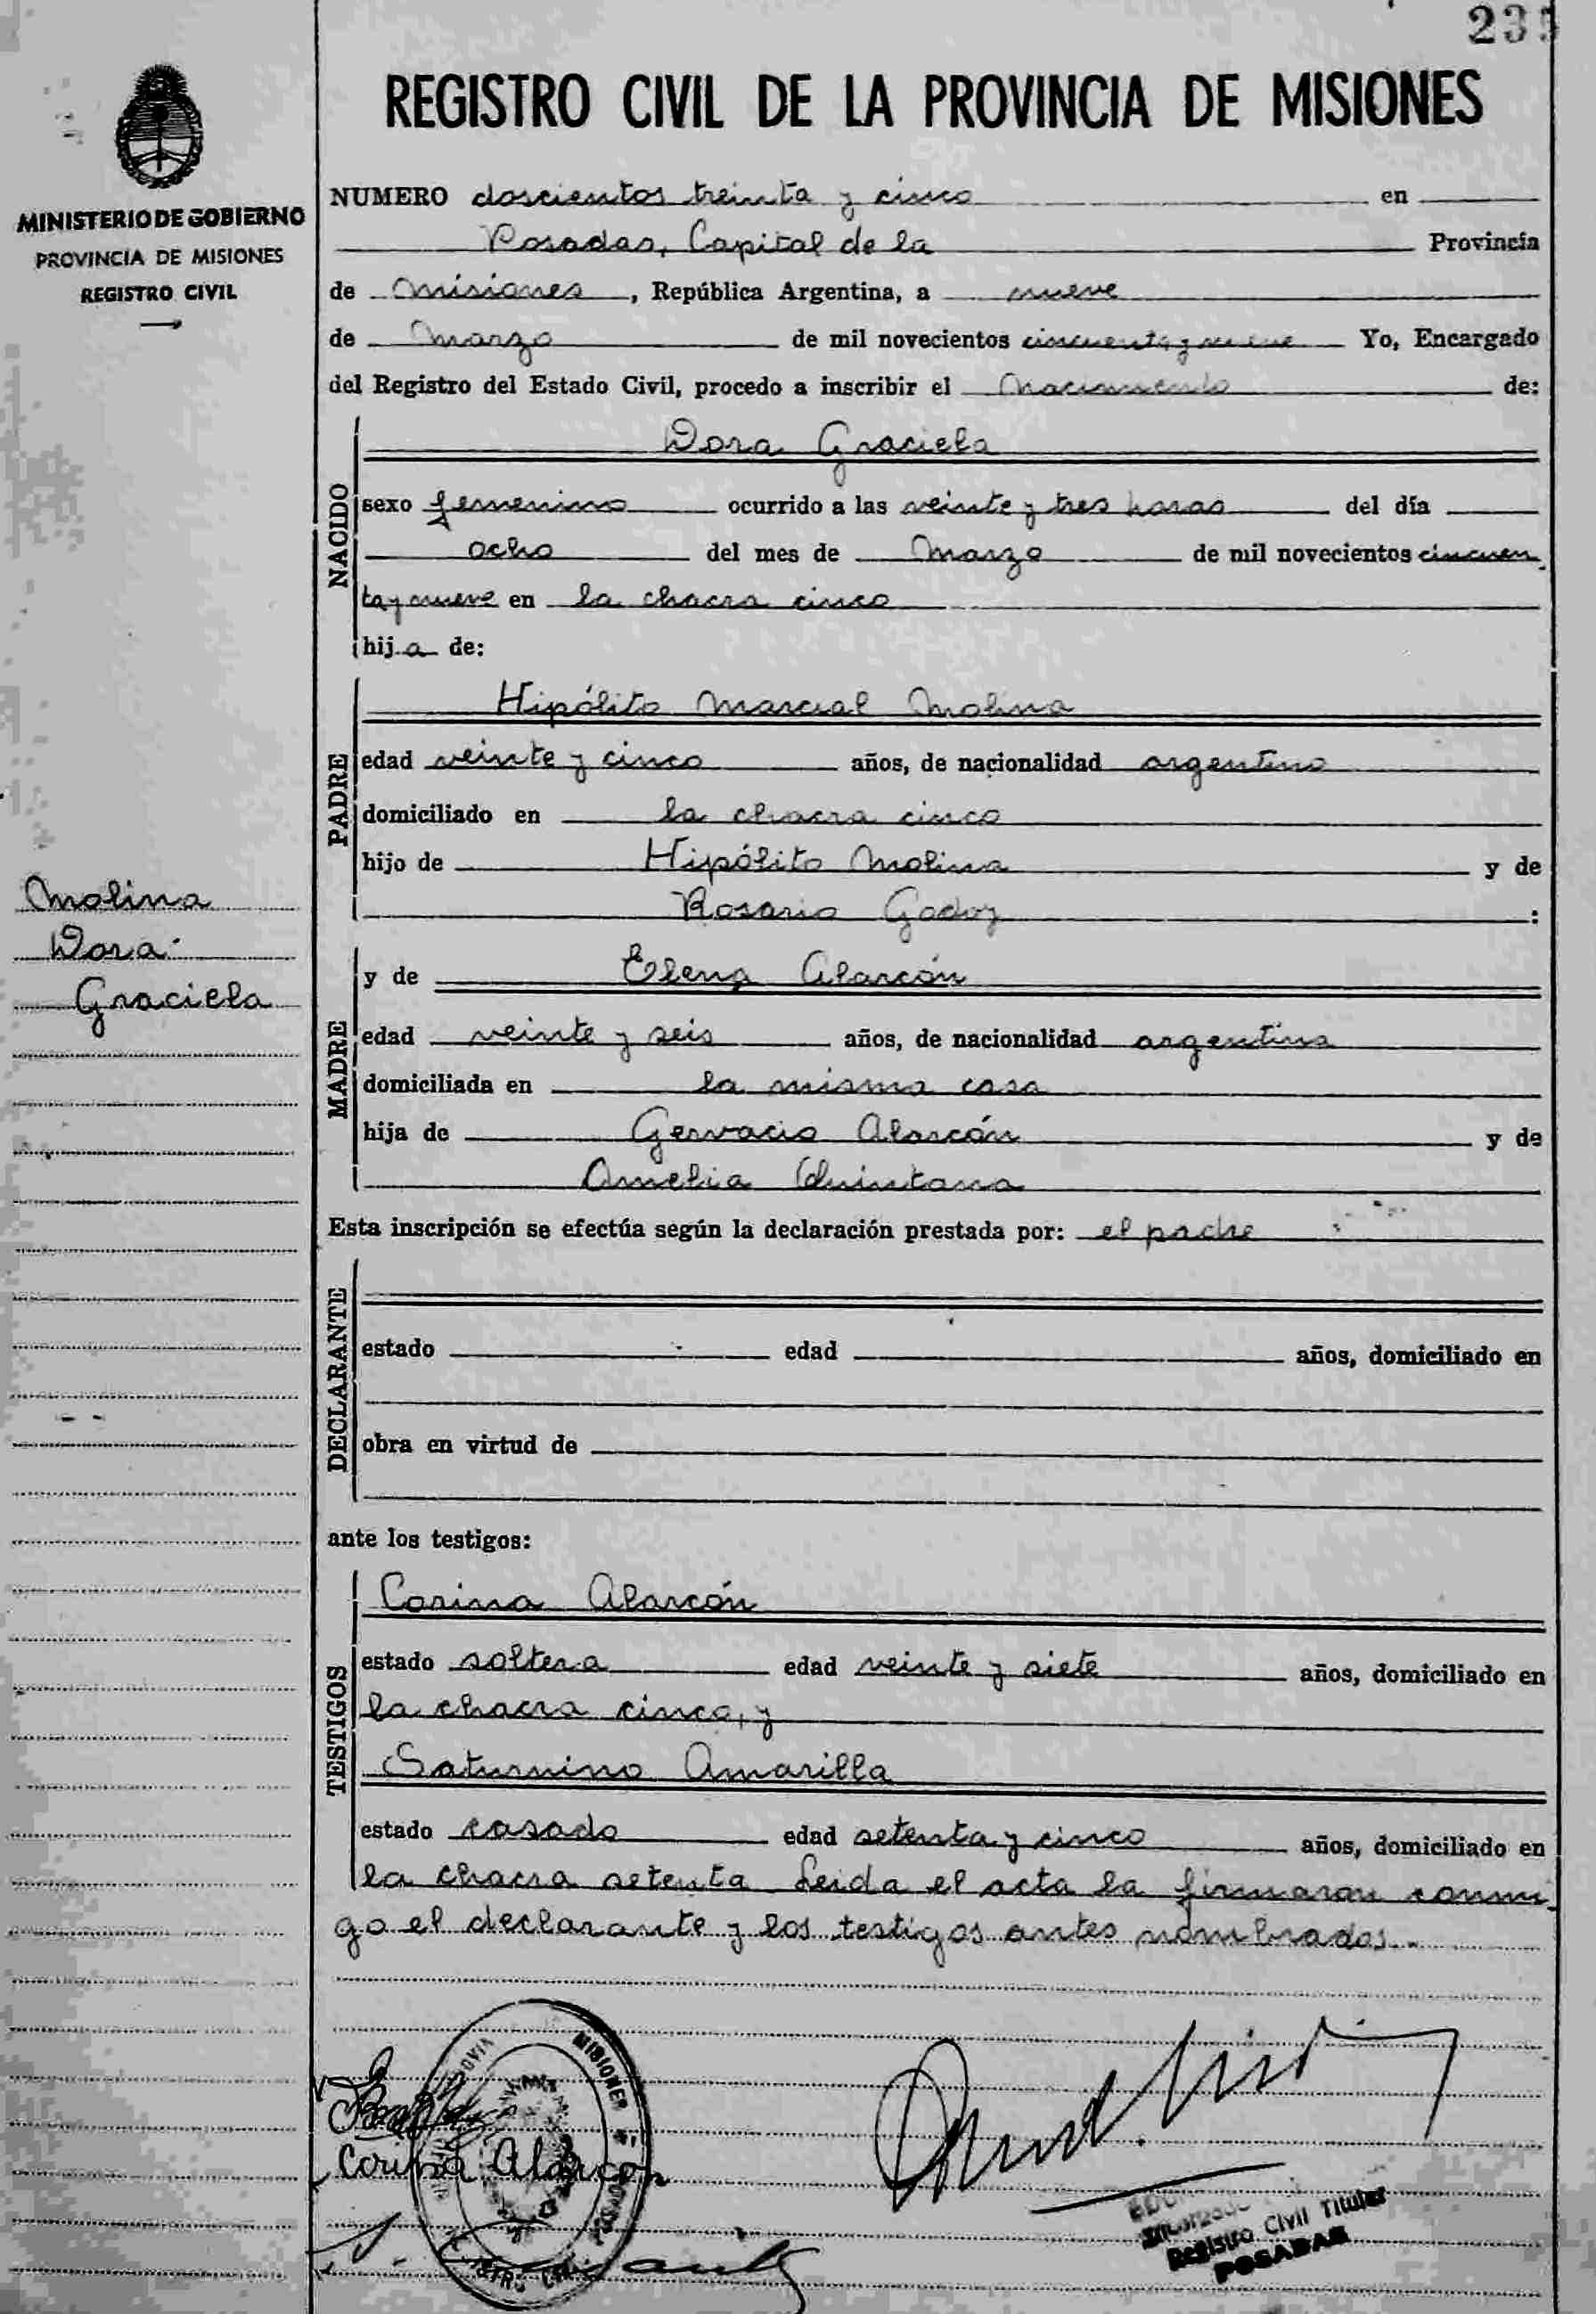 235
REGISTRO CIVIL DE LA PROVINCIA DE MISIONES
MINISTERIO DE GOBIERNO
PROVINCIA DE MISIONES
REGISTRO CIVIL
NUMERO doscientos treinta y cinco en
Posadas, Capital de la Provincia
de Misiones, República Argentina, a nueve
de Marzo de mil novecientos cincuenta y nueve Yo, Encargado
del Registro del Estado Civil, procedo a inscribir el Nacimiento de:
NACIDO
Dora Graciela
sexo femenino ocurrido a las veinte y tres horas del día
ocho del mes de Marzo de mil novecientos cincuen
ta y nueve en la chacra cinco
hija de:
PADRE
Hipólito Marcial Molina
edad veinte y cinco años, de nacionalidad argentino
domiciliado en la chacra cinco
hijo de Hipólito Molina y de
Rosario Godoy :
Molina
Dora
Graciela
MADRE
y de Elena Alarcón
edad veinte y seis años, de nacionalidad argentina
domiciliada en la misma casa
hija de Gervacio Alarcón y de
Amelia Quintana
Esta inscripción se efectúa según la declaración prestada por: el padre
DECLARANTE
estado edad años, domiciliado en
obra en virtud de
ante los testigos:
TESTIGOS
Corina Alarcón
estado soltera edad veinte y siete años, domiciliado en
la chacra cinco, y
Saturnino Amarilla
estado casado edad setenta y cinco años, domiciliado en
la chacra setenta Leida el acta la firmaron conmi
go el declarante y los testigos antes nombrados.
MISIONES
Corina Alarcon
Encargado
Registro Civil Titular
POSADAS